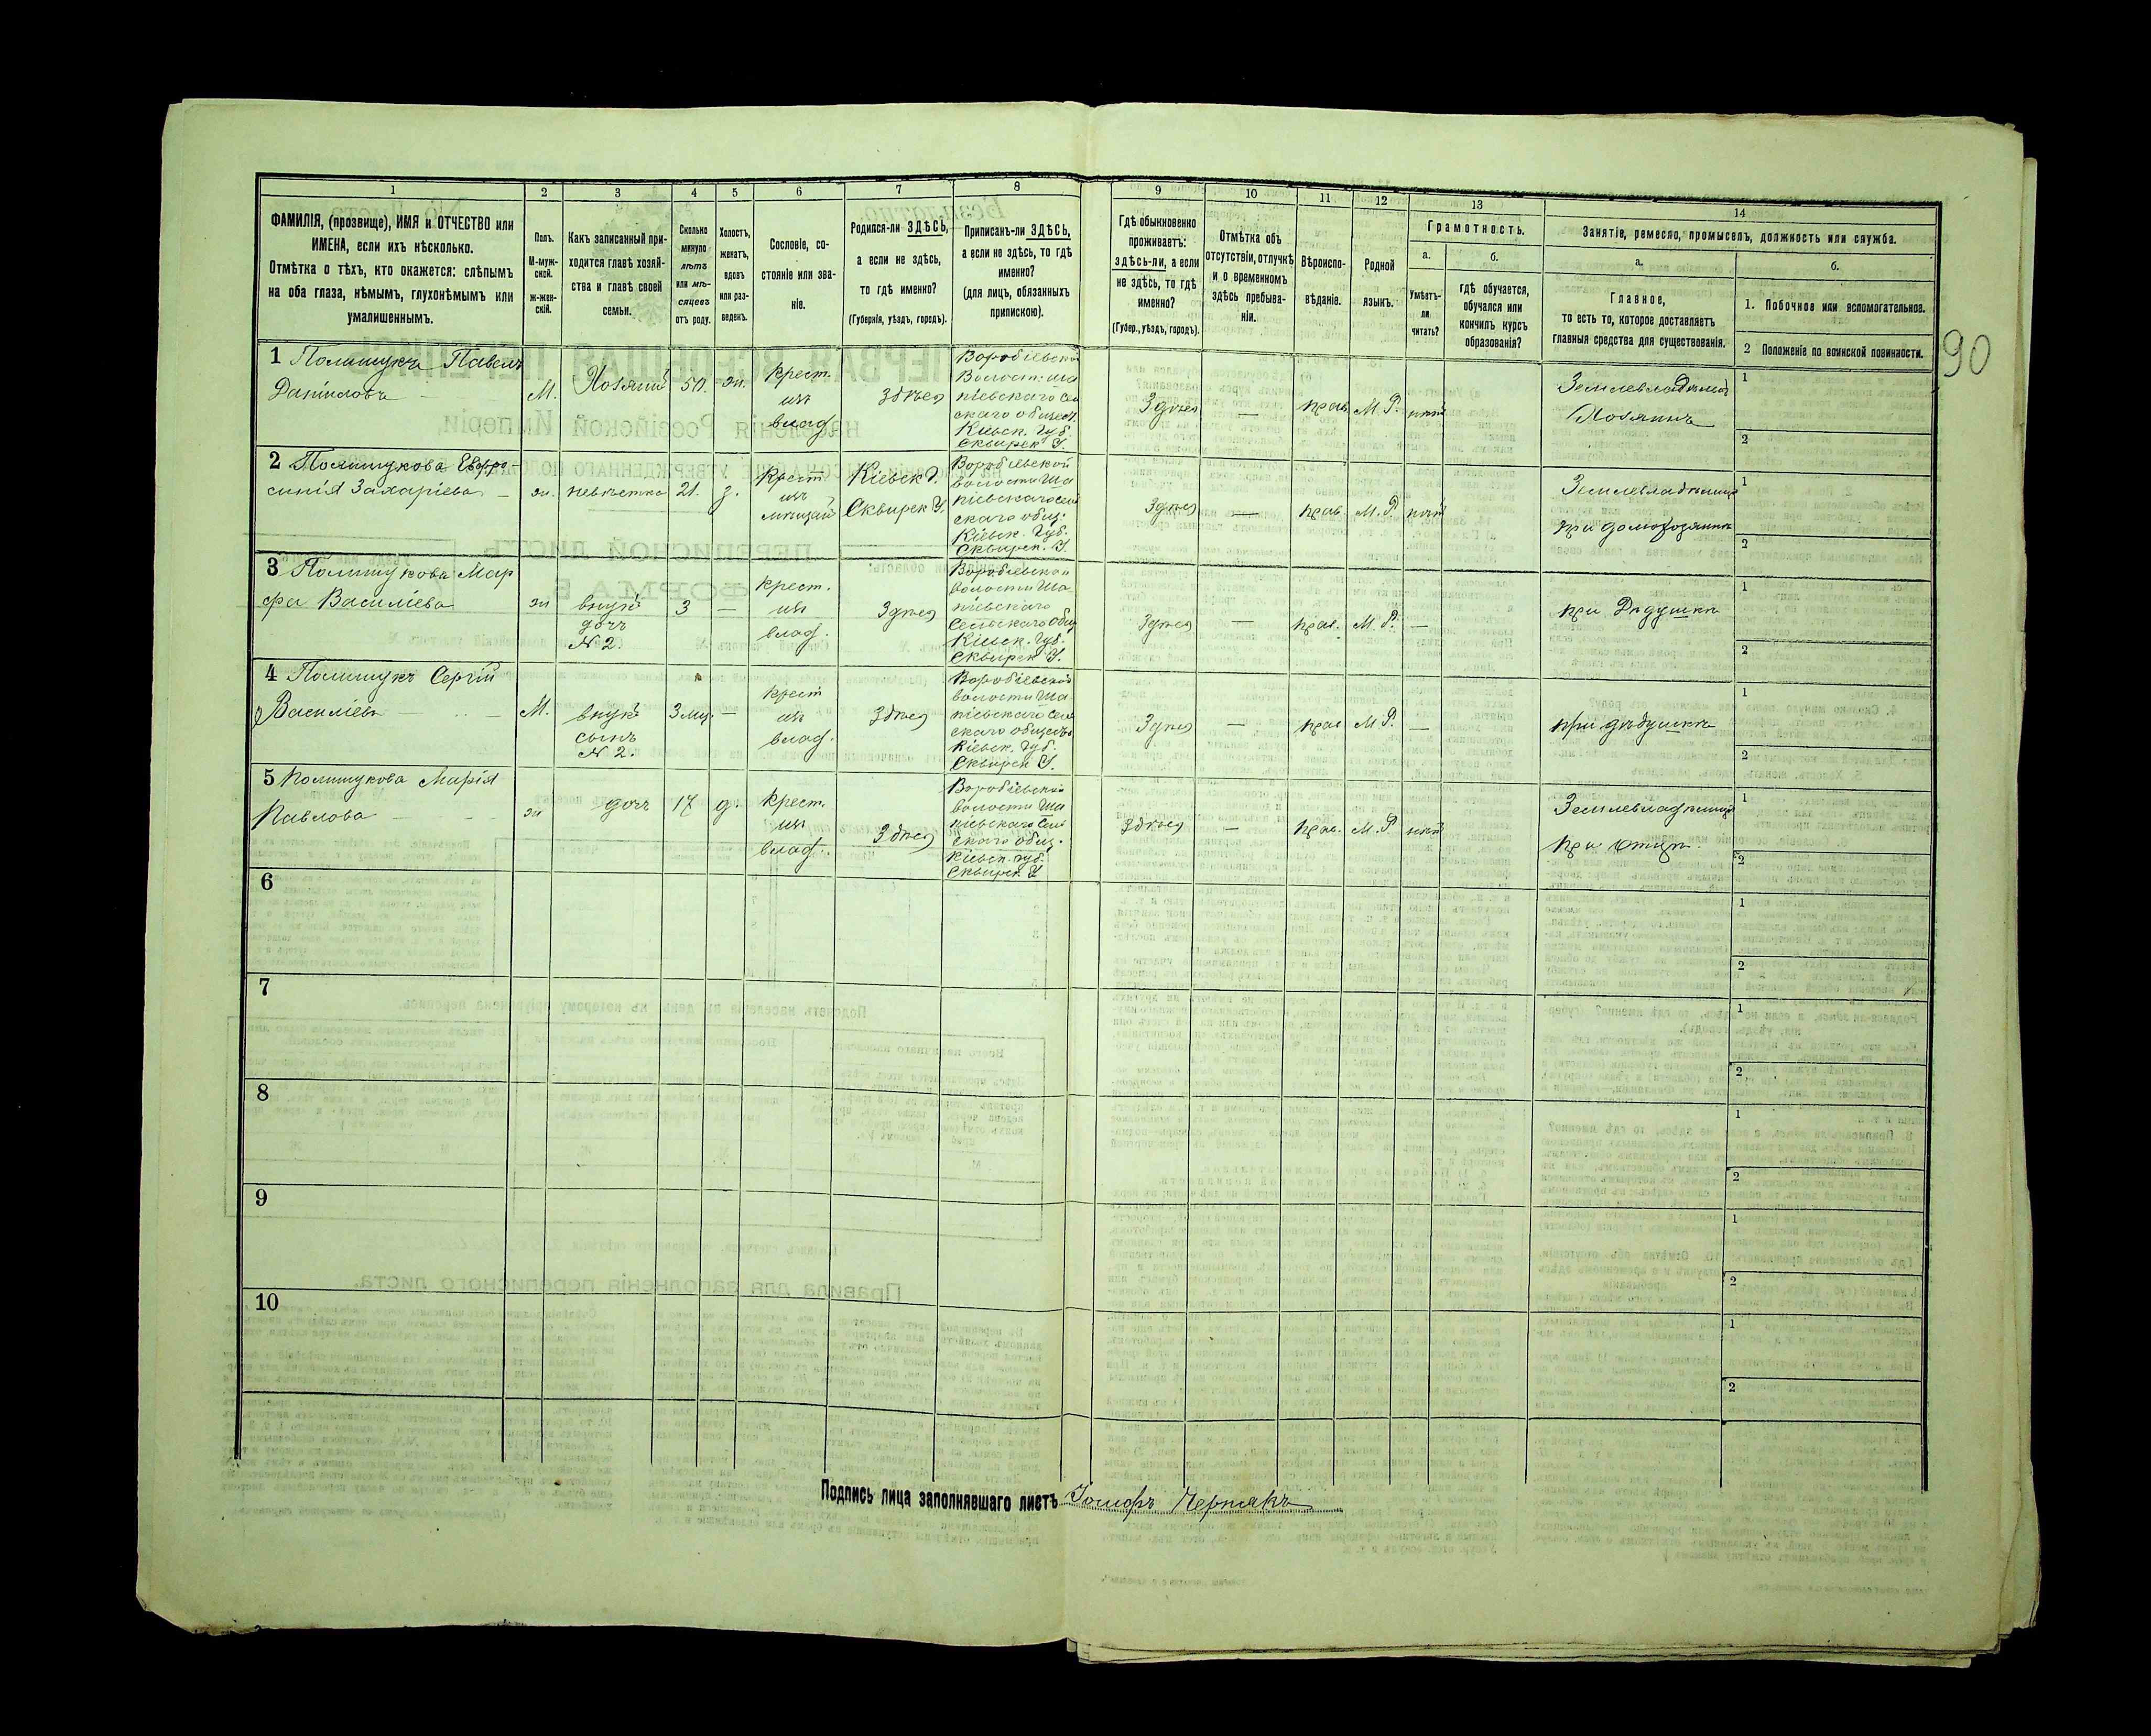 1
2
3
4
5
6
7
8
9
10
11
12
13
14
ФАМИЛІЯ, (прозвище), ИМЯ и ОТЧЕСТВО или
ИМЕНА, если ихъ нѣсколько.
Отмѣтка о тѣхъ, кто окажется: слѣпымъ
на оба глаза, нѣмымъ, глухонѣмымъ или
умалишеннымъ.
Полъ.
М-муж-
ской.
ж-жен-
скій.
Какъ записанный при-
ходится главѣ хозяй-
ства и главѣ своей
семьи.
Сколько
минуло
лѣтъ
или мѣ-
сяцевъ
отъ роду.
Холостъ,
женатъ,
вдовъ
или раз-
веденъ.
Сословіе, со-
стояніе или зва-
ніе.
Родился-ли ЗДѢСЬ,
а если не здѣсь,
то гдѣ именно?
(Губернія, уѣздъ, городъ).
Приписанъ-ли ЗДѢСЬ,
а если не здѣсь, то гдѣ
именно?
(для лицъ, обязанныхъ
припискою).
Гдѣ обыкновенно
проживаетъ:
здѣсь-ли, а если
не здѣсь, то гдѣ
именно?
(Губер., уѣздъ, городъ).
Отмѣтка объ
отсутствіи, отлучкѣ
и о временномъ
здѣсь пребыва-
ніи.
Вѣроиспо-
вѣданіе.
Родной
языкъ.
Грамотность.
а.
Умѣетъ-
ли
читать?
б.
гдѣ обучается,
обучался или
кончилъ курсъ
образованія?
Занятіе, ремесло, промыселъ, должность или служба.
а.
Главное,
то есть то, которое доставляетъ
главныя средства для существованія.
б.
1. Побочное или вспомогательное.
2 Положеніе по воинской повинности.
90
1 Полищукъ Павелъ
Даниловъ
М.
Хозяинъ
50.
жн.
крест.
изъ
влад.
здѣсь
Воробіевской
Волости Ша
піевскаго Сель
скаго общест.
Кіевск. Губ
Сквирск У.
Здѣсь
—
прав.
М. Р.
нѣтъ
Землевладѣлецъ
Хозяинъ
1
2
2 Полищукова Евфро
синія Захаріева
жн.
невѣстка
21.
з.
крест
изъ
мѣщан
Кіевск Г.
Сквирск У.
Воробіевской
волости Ша
піевскаго Сель
скаго общ.
Кіевск. Губ.
Сквирск. У.
Здѣсь
—
прав.
М. Р
нѣтъ
при домохозяинѣ
1
2
3 Полищукова Мар
фа Василіева
жн
дочь
N 2.
3
—
крест.
изъ
влад.
Здѣсь
Воробіевской
волости Ша
піевскаго
Сельскаго Общ
Кіевск. Губ.
Сквирск У.
Здѣсь
—
прав.
М. Р.
—
при Дѣдушкѣ
1
2
4 Полищукъ Сергій
Василіевъ
М.
внукъ
сынъ
N 2.
—
крест
изъ
влад.
Здѣсь
Воробіевской
волости Ша
піевскаго Сель
скаго общества
Кіевск. Губ.
Сквирск У.
Здѣсь
—
прав
М Р.
—
при дѣдушкѣ
1
2
5 Полищукова Марія
Павлова
жн
дочь
17
д.
крест.
изъ
влад.
Здѣсь
Воробіевской
волости Ша
піевскаго Сель
скаго общ.
Кіевск. губ.
Сквирск У
здѣсь
—
прав.
М. Р
нѣтъ
при отцѣ.
1
2
6
1
2
7
1
2
8
1
2
9
1
2
10
1
2
Подпись лица заполнявшаго листъ